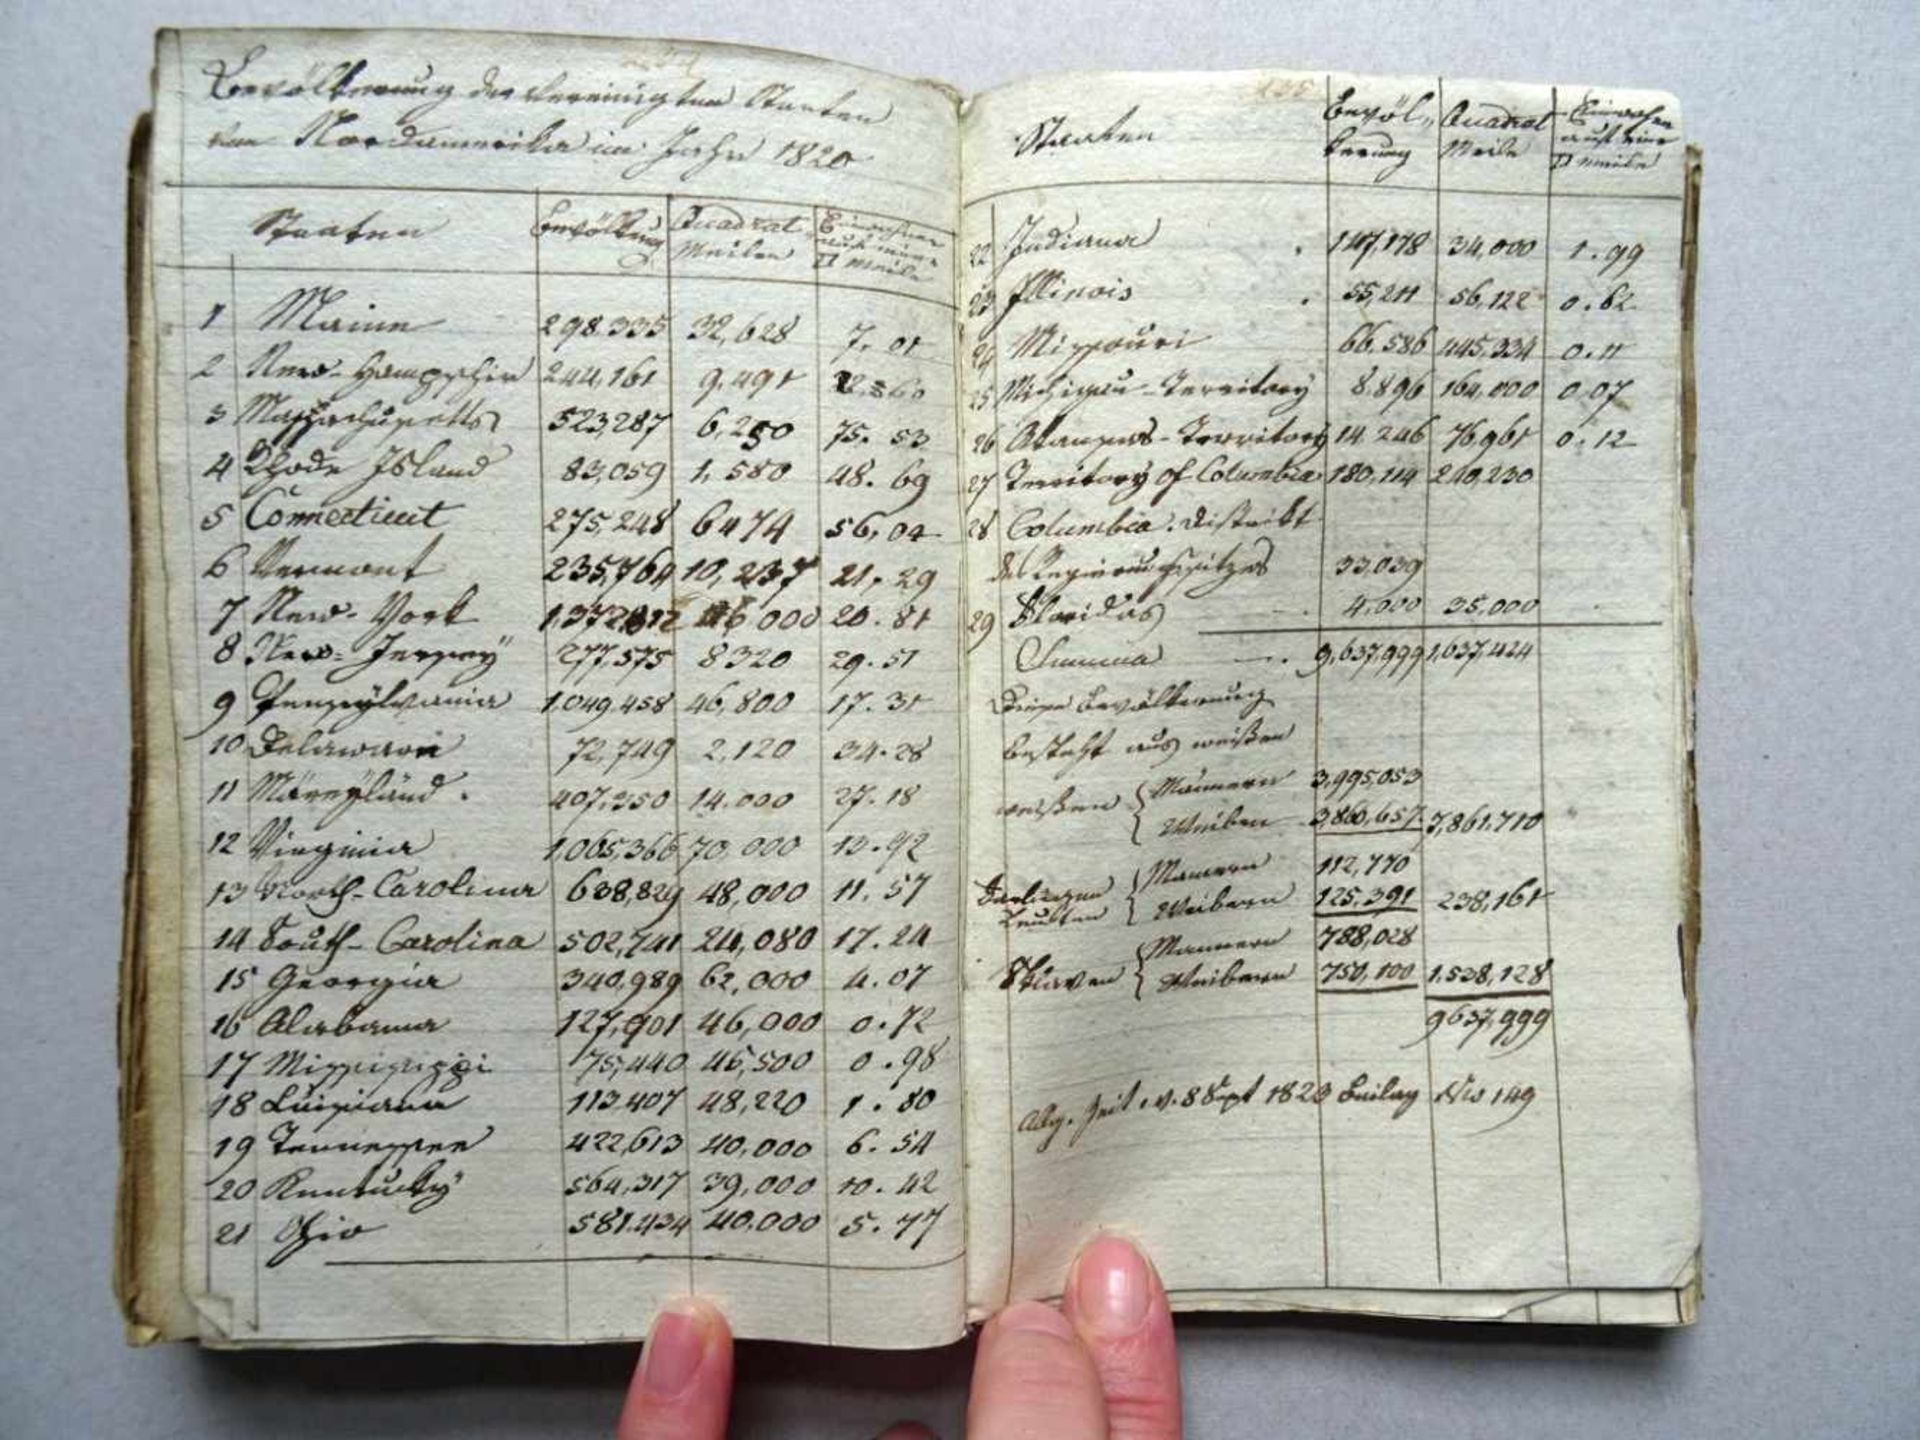 Bevölkerung der vereinigten Staaten
von Nordamerika im Jahr 1820
Staaten Bevölkrung Quadrat Meilen Einwohner auf eine □ meile
1 Maine 298.335 32,628 7.01
2 New-Hampschir 244,161 9,491
3 Massachusetts 523,287 6,250 75.53
4 Rhode Island 83,059 1,580 48.69
5 Connecticut 275,248 6474 56,04
6 Vermont 235,764 10,237 21.29
7 New-York 46000 20.81
8 New-Jersey 277,575 8320 29.51
9 Pensylvania 1.049.458 46,800 17.31
10 Delaware 72,749 2,120 34.28
11 Maryland. 407,350 14.000 27.18
12 Virginia 1,065,366 70,000 13.92
13 North-Carolina 638,829 48,000 11.57
14 South-Carolina 502,741 24,080 17.24
15 Georgia 340,989 62,000 4.07
16 Alabama 127,901 46,000 0.72
17 Missisippi 75,440 45,500 0.98
18 Luisiana 113407 48,220 1.80
19 Tennessee 422,613 40,000 6.54
20 Kentucky 564,317 39,000 10.42
21 Ohio 581.434 40.000 5.77
Staaten Bevölkerung Quadrat Meile Einwohner auf eine □ meile
22 Indiana 147,178 34,000 1.99
23 Illinois 55,211 56,122 0.62
24 Missouri 66.586 445,334 0.11
25 Michigan-Territory 8.896 164,000 0.07
26 Arkansas-Territory 14.246 76,961 0.12
27 Territory of Columbia 180,114 210,230
28 Columbia. Distrikt
des Regierungssitzes 33,039
29 Floridas 4,000 35.000
Summa 9,637,999 1,637,424
Diese Bevölkerung
besteht aus weißen
weißen { Männern 3,995,053
Weiber 3,866,657. 7,861,710
Farbigen { Mannern 112,770
Leuten Weibern 125,391 238,161
Sklaven { Mannern 788,028
Weibern 750,100 1.538,128
9637,999
Allg. Zeit. v. 8 Sept 1823 Beilag Nro 149